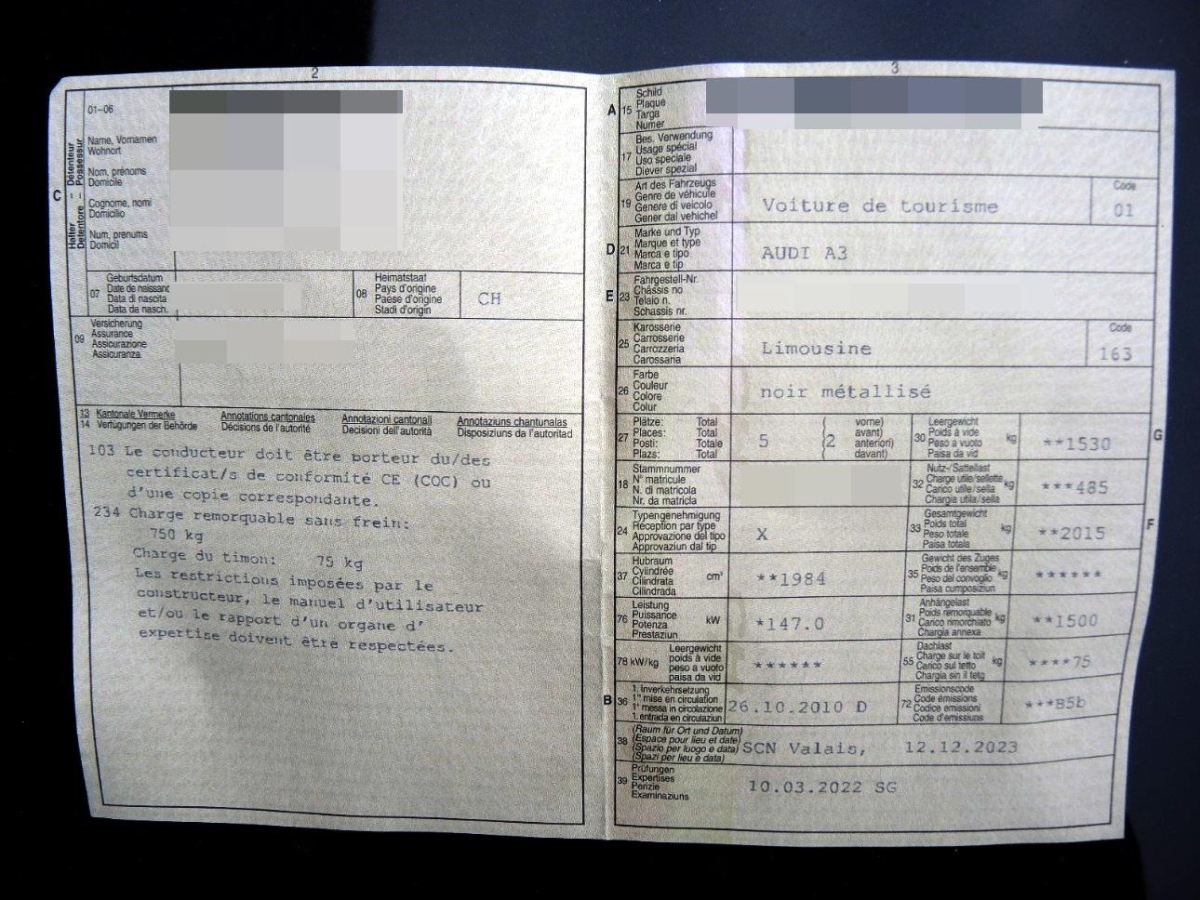 2
01-06
Name, Vornamen
Wohnort
Nom, prénoms
Domicile
Cognome, nomi
Domicilio
Num, prenums
Domicil
C
Halter – Détenteur
Detentore – Possessur
07
Geburtsdatum
Date de naissanc
Data di nascita
Data da nasch.
08
Heimatstaat
Pays d'origine
Paese d'origine
Stadi d'origin
CH
09
Versicherung
Assurance
Assicurazione
Assicuranza
13 Kantonale Vermerke Annotations cantonales Annotazioni cantonali Annotaziuns chantunalas
14 Verfügungen der Behörde Décisions de l'autorité Decisioni dell'autorità Disposiziuns da l'autoritad
103 Le conducteur doit être porteur du/des
certificat/s de conformité CE (COC) ou
d'une copie correspondante.
234 Charge remorquable sans frein:
750 kg
Charge du timon: 75 kg
Les restrictions imposées par le
constructeur, le manuel d'utilisateur
et/ou le rapport d'un organe d'
expertise doivent être respectées.
3
A 15
Schild
Plaque
Targa
Numer
17
Bes. Verwendung
Usage spécial
Uso speciale
Diever spezial
19
Art des Fahrzeugs
Genre de véhicule
Genere di veicolo
Gener dal vehichel
Voiture de tourisme
Code
01
D 21
Marke und Typ
Marque et type
Marca e tipo
Marca e tip
AUDI A3
E 23
Fahrgestell-Nr.
Châssis no
Telaio n.
Schassis nr.
25
Karosserie
Carrosserie
Carrozzeria
Carossaria
Limousine
Code
163
26
Farbe
Couleur
Colore
Colur
noir métallisé
27
Plätze: Total
Places: Total
Posti: Totale
Plazs: Total
5
(2
vorne)
avant)
anteriori)
davant)
30
Leergewicht
Poids à vide
Peso a vuoto
Paisa da vid
kg
**1530
G
18
Stammnummer
N° matricule
N. di matricola
Nr. da matricla
32
Nutz-/Sattellast
Charge utile/sellette
Carico utile/sella
Chargia utila/sella
kg
***485
24
Typengenehmigung
Réception par type
Approvazione del tipo
Approvaziun dal tip
X
33
Gesamtgewicht
Poids total
Peso totale
Paisa totala
kg
**2015
F
37
Hubraum
Cylindrée
Cilindrata
Cilindrada
cm³
**1984
35
Gewicht des Zuges
Poids de l'ensemble
Peso del convoglio
Paisa cumposiziun
kg
******
76
Leistung
Puissance
Potenza
Prestaziun
kW
*147.0
31
Anhängelast
Poids remorquable
Carico rimorchiato
Chargia annexa
kg
**1500
78 kW/kg
Leergewicht
poids à vide
peso a vuoto
paisa da vid
******
55
Dachlast
Charge sur le toit
Carico sul tetto
Chargia sin il tetg
kg
****75
B 36
1. Inverkehrsetzung
1re mise en circulation
1a messa in circolazione
1. entrada en circulaziun
26.10.2010 D
72
Emissionscode
Code émissions
Codice emissioni
Code d'emissiuns
***B5b
38
(Raum für Ort und Datum)
(Espace pour lieu et date)
(Spazio per luogo e data)
(Spazi per lieu e data)
SCN Valais, 12.12.2023
39
Prüfungen
Expertises
Perizie
Examinaziuns
10.03.2022 SG